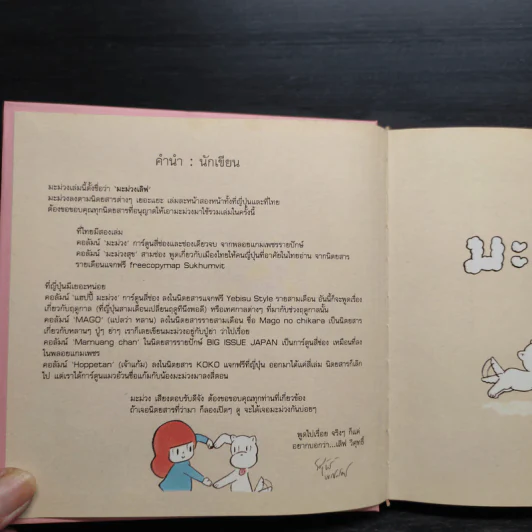 คำนำ : นักเขียน
มะม่วงเล่มนี้ตั้งชื่อว่า 'มะม่วงเลิฟ'
มะม่วงลงตามนิตยสารต่างๆ เยอะแยะ เล่มละหน้าสองหน้าทั้งที่ญี่ปุ่นและที่ไทย
ต้องขอขอบคุณทุกนิตยสารที่อนุญาตให้เอามะม่วงมาใช้รวมเล่มในครั้งนี้
ที่ไทยมีสองเล่ม
คอลัมน์ 'มะม่วง' การ์ตูนสี่ช่องและช่องเดียวจบ จากพลอยแกมเพชรรายปักษ์
คอลัมน์ 'มะม่วงสุข' สามช่อง พูดเกี่ยวกับเมืองไทยให้คนญี่ปุ่นที่อาศัยในไทยอ่าน จากนิตยสาร
รายเดือนแจกฟรี freecopymap Sukhumvit
ที่ญี่ปุ่นมีเยอะหน่อย
คอลัมน์ 'แฮปปี้ มะม่วง' การ์ตูนสี่ช่อง ลงในนิตยสารแจกฟรี Yebisu Style รายสามเดือน อันนี้ก็จะพูดเรื่อง
เกี่ยวกับฤดูกาล (ที่ญี่ปุ่นสามเดือนเปลี่ยนฤดูทีนึงพอดี) หรือเทศกาลต่างๆ ที่มากับช่วงฤดูกาลนั้น
คอลัมน์ 'MAGO' (แปลว่า หลาน) ลงในนิตยสารรายสามเดือน ชื่อ Mago no chikara เป็นนิตยสาร
เกี่ยวกับหลานๆ ปู่ๆ ย่าๆ เราก็เลยเขียนมะม่วงอยู่กับปู่ย่า ว่าไปเรื่อย
คอลัมน์ 'Mamuang chan' ในนิตยสารรายปักษ์ BIG ISSUE JAPAN เป็นการ์ตูนสี่ช่อง เหมือนที่ลง
ในพลอยแกมเพชร
คอลัมน์ 'Hoppetan' (เจ้าแก้ม) ลงในนิตยสาร KOKO แจกฟรีที่ญี่ปุ่น ออกมาได้แค่สี่เล่ม นิตยสารก็เลิก
ไป แต่เราได้การ์ตูนแมวอ้วนชื่อแก้มกับน้องมะม่วงมาลงสี่ตอน
มะม่วง เสียงตอบรับดีจัง ต้องขอบคุณทุกท่านที่เกี่ยวข้อง
ถ้าเจอนิตยสารที่ว่ามา ก็ลองเปิดๆ ดู จะได้เจอมะม่วงกันบ่อยๆ
พูดไปเรื่อย จริงๆ ก็แค่
อยากบอกว่า...เลิฟ วิศุทธิ์
มะ